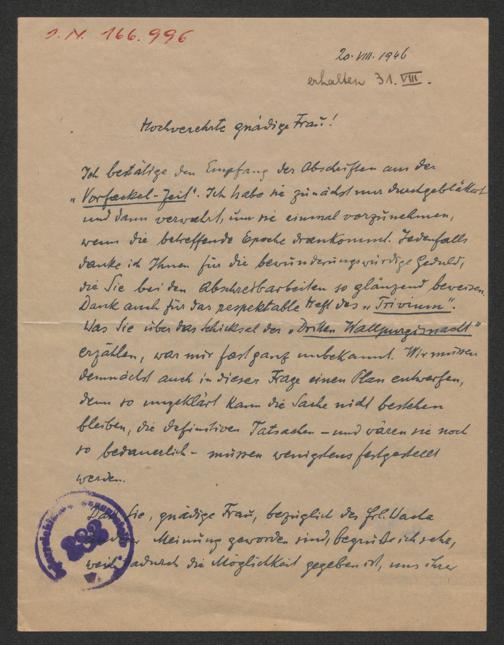 J.N. 166.996
20. VIII. 1946
erhalten 31. VIII.
Hochverehrte gnädige Frau!
Ich bestätige den Empfang der Abschriften aus der
„Vorfackel-Zeit“. Ich habe sie zunächst nur durchgeblättert
und dann verwahrt, um sie einmal vorzunehmen,
wenn die betreffende Epoche drankommt. Jedenfalls
danke ich Ihnen für die bewunderungswürdige Geduld,
die Sie bei den Abschreibarbeiten so glänzend beweisen.
Dank auch für das respektable Heft des „Trivium“.
Was Sie über das Schicksal der „Dritten Walpurgisnacht“
erzählen, war mir fast ganz unbekannt. Wir müssen
demnächst auch in dieser Frage einen Plan entwerfen,
denn so ungeklärt kann die Sache nicht bestehen
bleiben, die definitiven Tatsachen – und wären sie noch
so bedauerlich – müssen wenigstens festgestellt
werden.
Sie, gnädige Frau, bezüglich des Frl.
Meinung geworden sind, begrüße ich sehr,
weil dadurch die Möglichkeit gegeben ist, uns ihrer
283